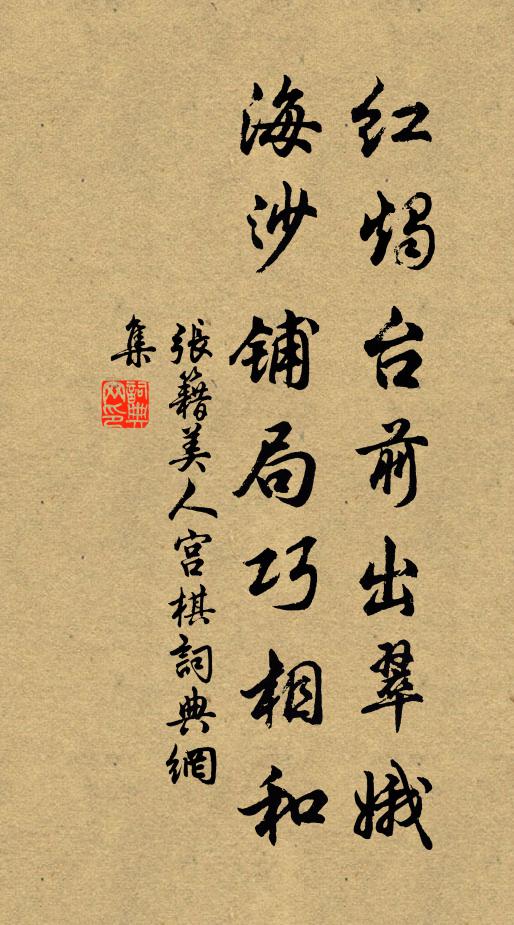 红烛台前出翠娥
海沙铺局巧相和
張籍美人宫棋詞典網
集
詞典
网印